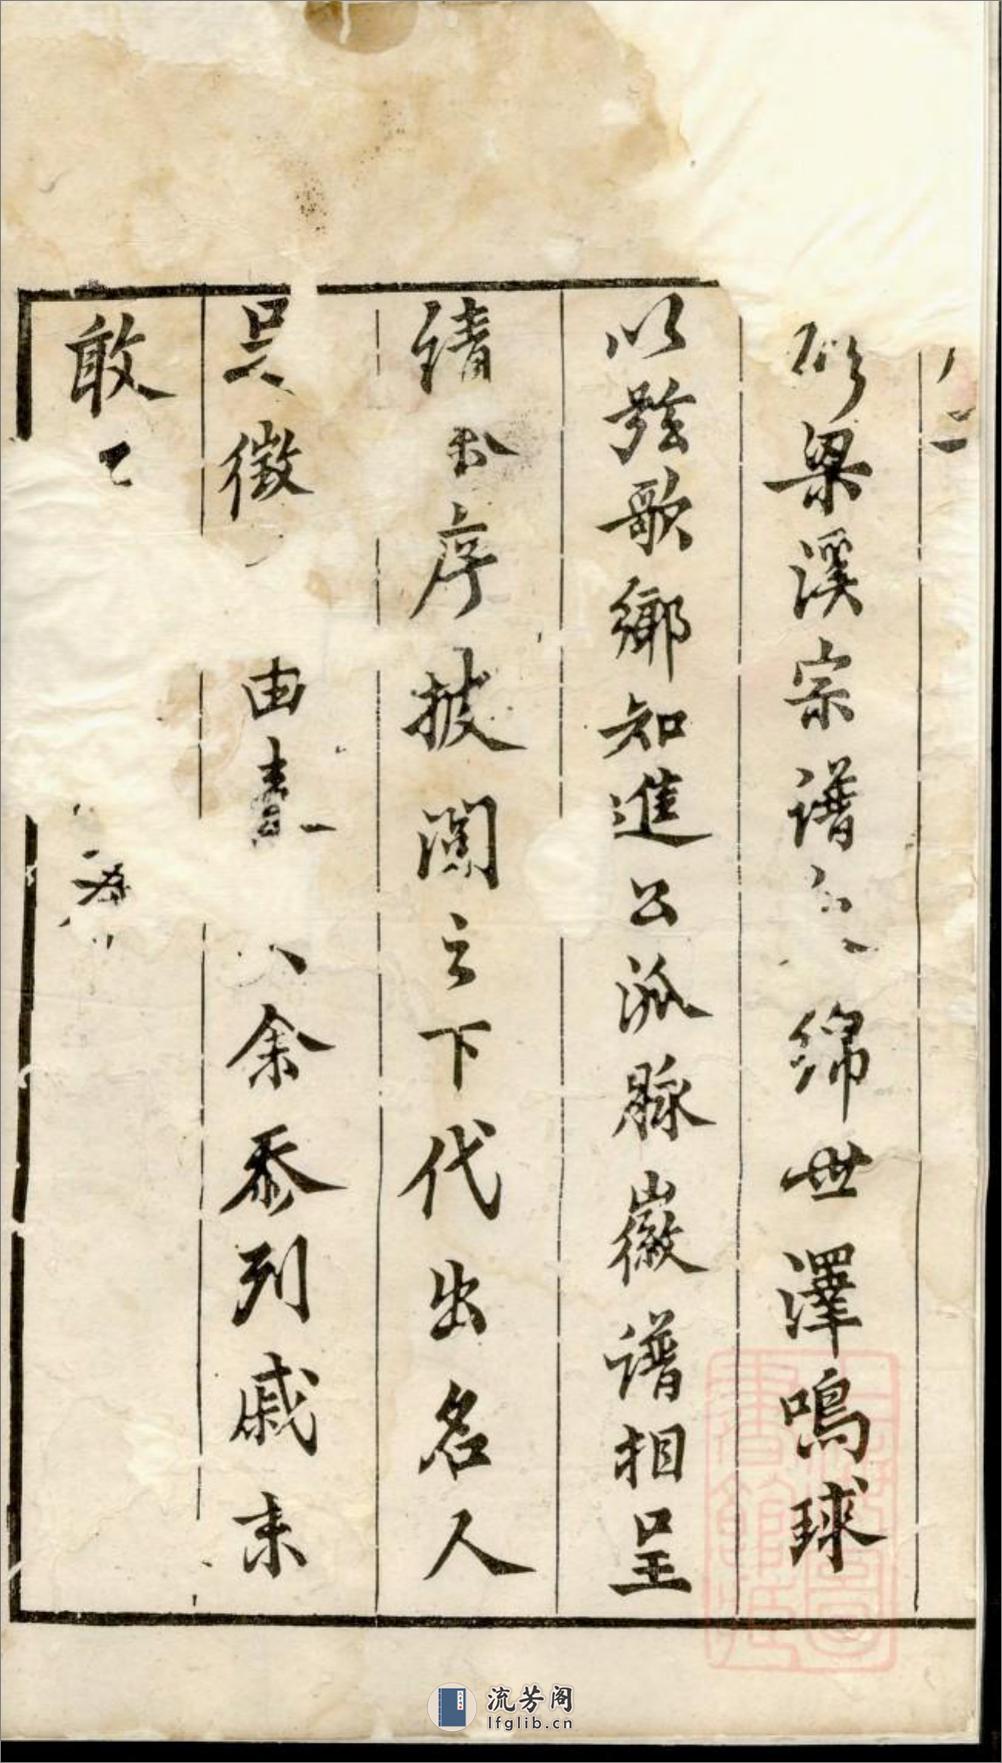 梁溪宗譜 綿世澤鳴球
以弦歌鄉知進公派脉徽譜相呈
請 序披閱之下代出名人
吳徵 由 余忝列戚末
敢
流芳阁
lfglib.cn